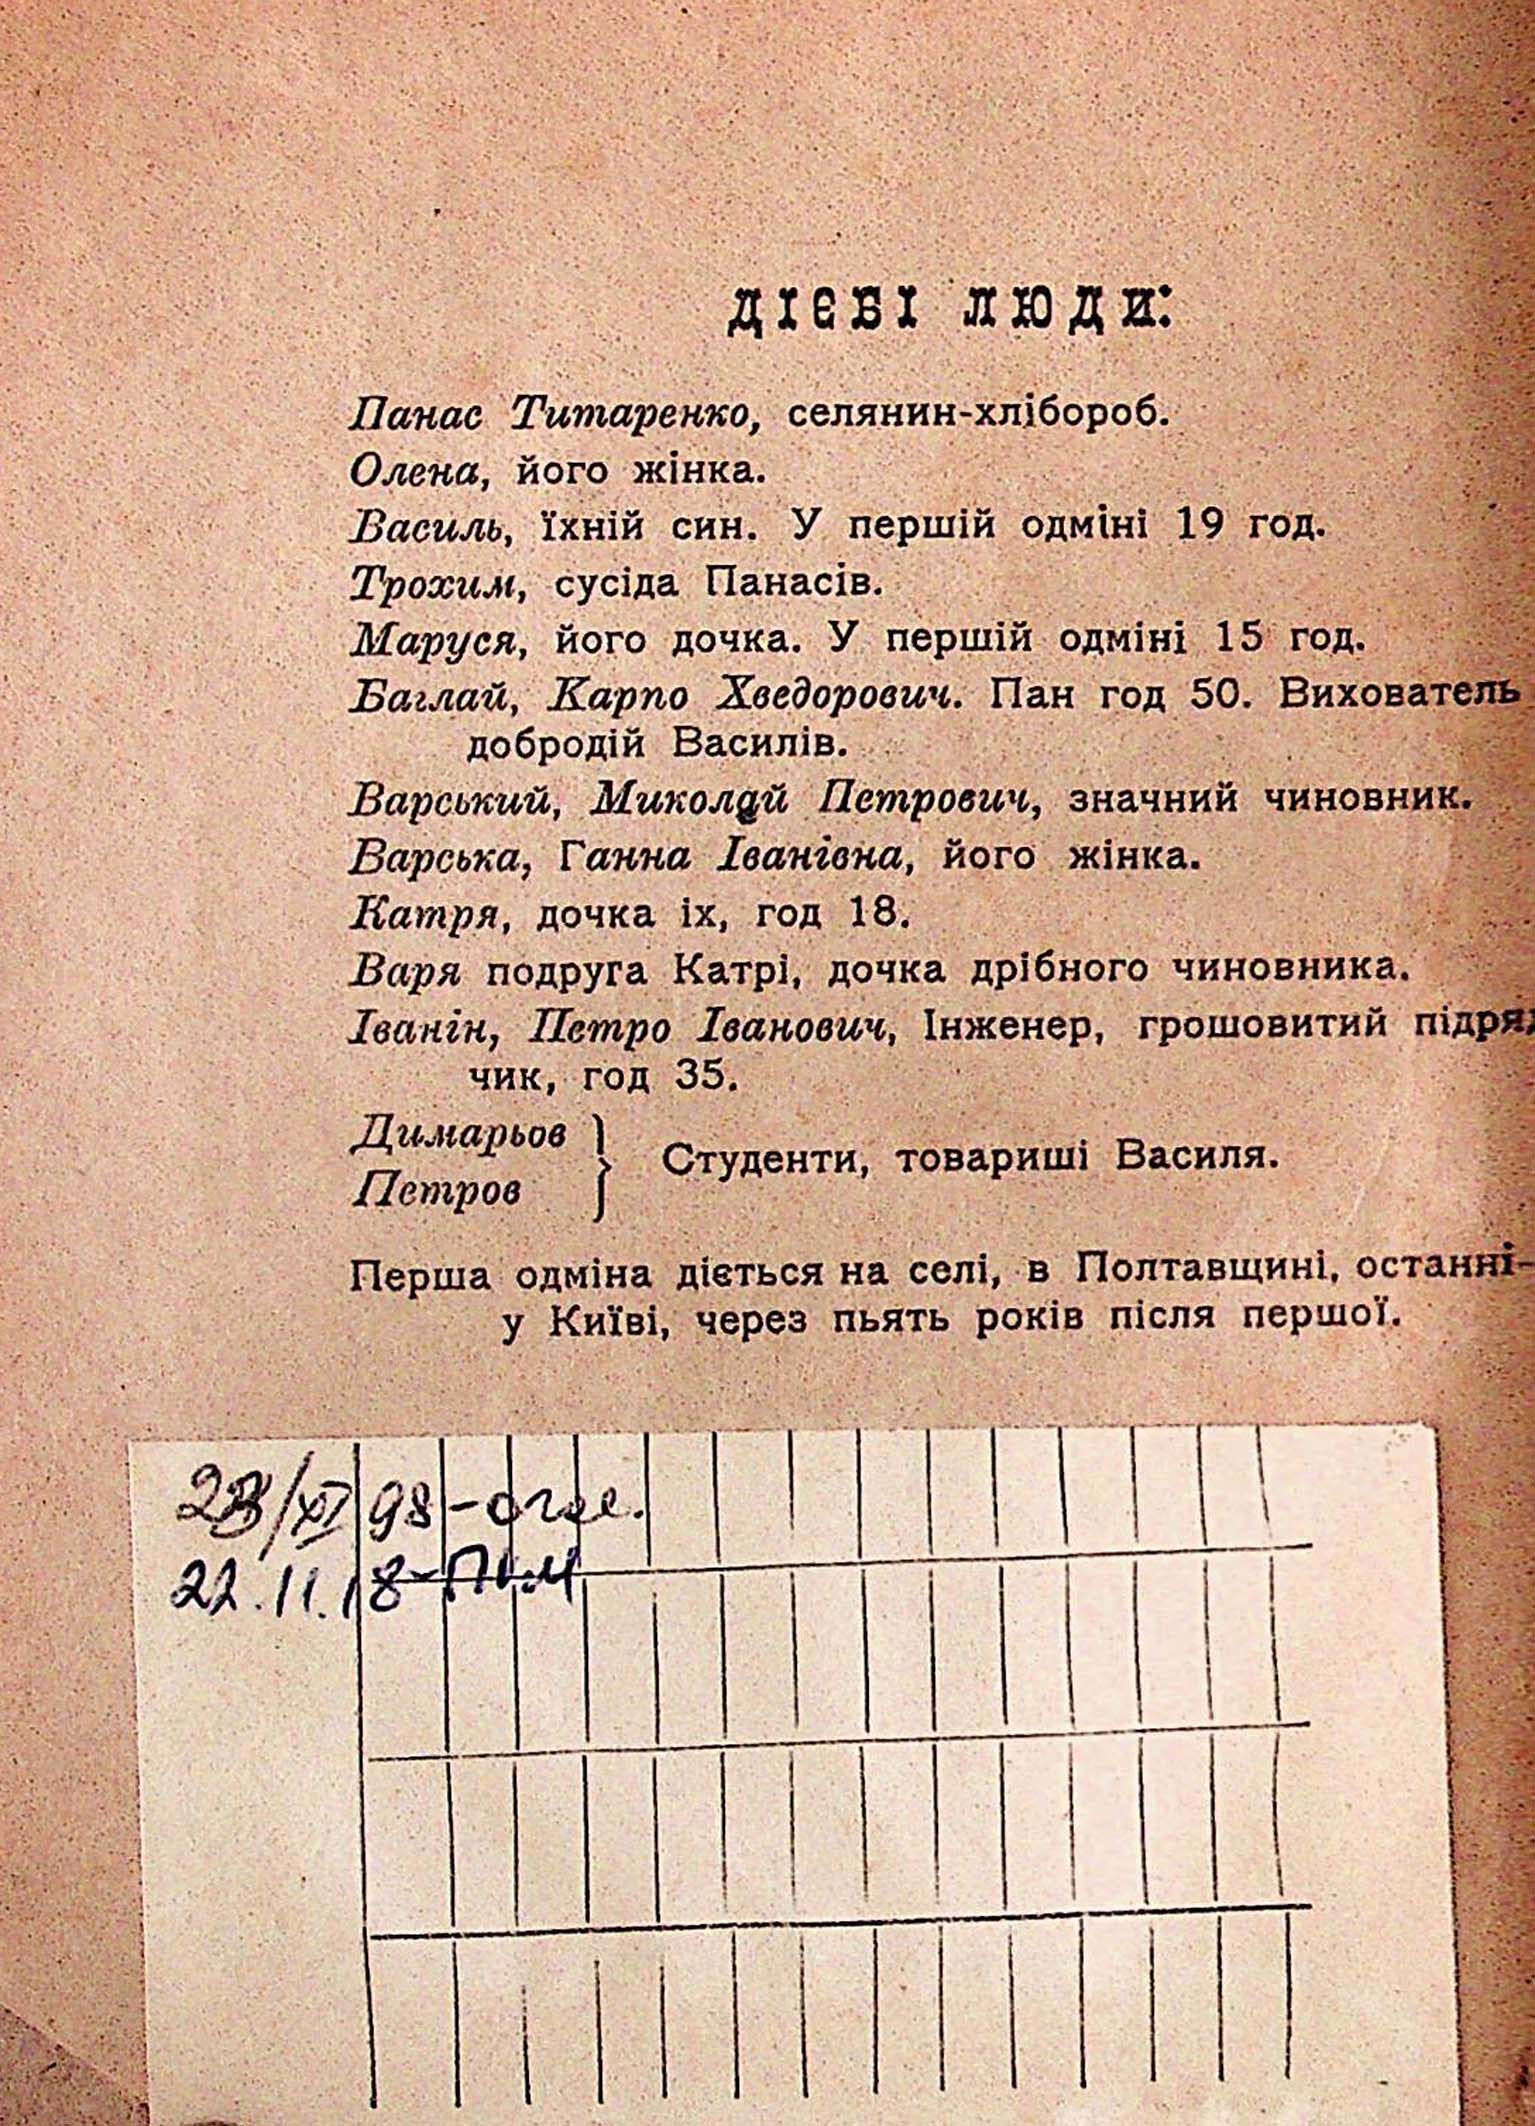 ДІЄВІ ЛЮДИ:
Панас Титаренко, селянин-хлібороб.
Олена, його жінка.
Василь, їхній син. У першій одміні 19 год.
Трохим, сусіда Панасів.
Маруся, його дочка. У першій одміні 15 год.
Баглай, Карпо Хведорович. Пан год 50. Вихователь
добродій Василів.
Варський, Миколай Петрович, значний чиновник.
Варська, Ганна Іванівна, його жінка.
Катря, дочка іх, год 18.
Варя подруга Катрі, дочка дрібного чиновника.
Іванін, Петро Іванович, Інженер, грошовитий підряд
чик, год 35.
Димарьов
Петров
Студенти, товариші Василя.
Перша одміна діється на селі, в Полтавщині, останні-
у Київі, через пьять років після першої.
23/XI 98
22.11.18